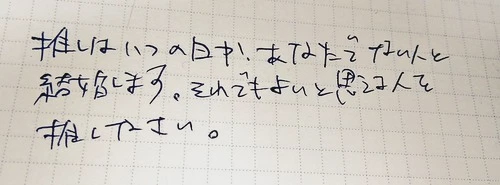 推しはいつの日か、あなたでない人と
結婚します。それでもよいと思える人を
推しなさい。